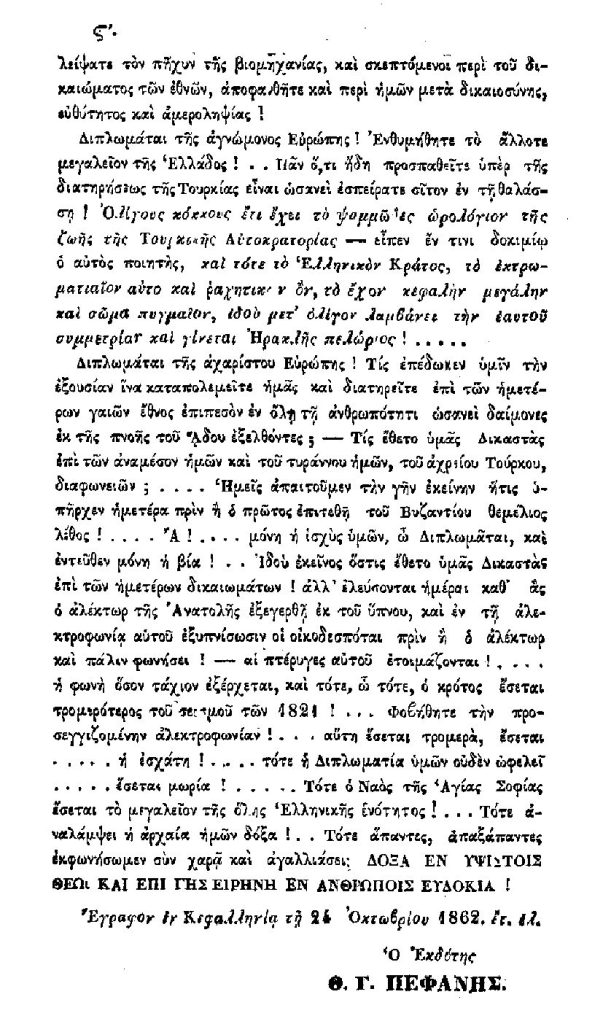 ς'.
λείψατε τὸν πῆχυν τῆς βιομηχανίας, καὶ σκεπτόμενοι περὶ τοῦ δι-
καιώματος τῶν ἐθνῶν, ἀποφανθῆτε καὶ περὶ ἡμῶν μετὰ δικαιοσύνης,
εὐθύτητος καὶ ἀμεροληψίας!
Διπλωμάται τῆς ἀγνώμονος Εὐρώπης! Ἐνθυμήθητε τὸ ἄλλοτε
μεγαλεῖον τῆς Ἑλλάδος! . . Πᾶν ὅ,τι ἤδη προσπαθεῖτε ὑπὲρ τῆς
διατηρήσεως τῆς Τουρκίας εἶναι ὡσανεὶ ἐσπείρατε σῖτον ἐν τῇ θαλάσ-
σῃ! Ὀλίγους κόκκους ἔτι ἔχει τὸ ψαμμῶδες ὡρολόγιον τῆς
ζωῆς τῆς Τουρκικῆς Αὐτοκρατορίας — εἶπεν ἔν τινι δοκιμίῳ
ὁ αὐτὸς ποιητὴς, καὶ τότε τὸ Ἑλληνικὸν Κράτος, τὸ ἐκτρω-
ματιαῖον αὐτὸ καὶ ῥαχητικὸν ὂν, τὸ ἔχον κεφαλὴν μεγάλην
καὶ σῶμα πυγμαῖον, ἰδοὺ μετ' ὀλίγον λαμβάνει τὴν ἑαυτοῦ
συμμετρίαν καὶ γίνεται Ἡρακλῆς πελώριος! . . . . .
Διπλωμάται τῆς ἀχαρίστου Εὐρώπης! Τίς ἐπέδωκεν ὑμῖν τὴν
ἐξουσίαν ἵνα καταπολεμεῖτε ἡμᾶς καὶ διατηρεῖτε ἐπὶ τῶν ἡμετέ-
ρων γαιῶν ἔθνος ἐπιπεσὸν ἐν ὅλῃ τῇ ἀνθρωπότητι ὡσανεὶ δαίμονες
ἐκ τῆς πνοῆς τοῦ ᾅδου ἐξελθόντες; — Τίς ἔθετο ὑμᾶς Δικαστὰς
ἐπὶ τῶν ἀναμέσον ἡμῶν καὶ τοῦ τυράννου ἡμῶν, τοῦ ἀχρείου Τούρκου,
διαφωνειῶν; . . . . Ἡμεῖς ἀπαιτοῦμεν τὴν γῆν ἐκείνην ἥτις ὑ-
πῆρχεν ἡμετέρα πρὶν ἢ ὁ πρῶτος ἐπιτεθῇ τοῦ Βυζαντίου θεμέλιος
λίθος! . . . . Ἆ! . . . . μόνη ἡ ἰσχὺς ὑμῶν, ὦ Διπλωμάται, καὶ
ἐντεῦθεν μόνη ἡ βία! . . Ἰδοὺ ἐκεῖνος ὅστις ἔθετο ὑμᾶς Δικαστὰς
ἐπὶ τῶν ἡμετέρων δικαιωμάτων! ἀλλ' ἐλεύσονται ἡμέραι καθ' ἃς
ὁ ἀλέκτωρ τῆς Ἀνατολῆς ἐξεγερθῇ ἐκ τοῦ ὕπνου, καὶ ἐν τῇ ἀλε-
κτροφωνίᾳ αὐτοῦ ἐξυπνίσωσιν οἱ οἰκοδεσπόται πρὶν ἢ ὁ ἀλέκτωρ
καὶ πάλιν φωνήσει! — αἱ πτέρυγες αὐτοῦ ἑτοιμάζονται! . . . .
ἡ φωνὴ ὅσον τάχιον ἐξέρχεται, καὶ τότε, ὦ τότε, ὁ κρότος ἔσεται
τρομιρότερος τοῦ σεισμοῦ τῶν 1821! . . . Φοβήθητε τὴν προ-
σεγγιζομένην ἀλεκτροφωνίαν! . . . αὕτη ἔσεται τρομερὰ, ἔσεται
. . . . . ἡ ἐσχάτη! . . . . . τότε ἡ Διπλωματία ὑμῶν οὐδὲν ὠφελεῖ
. . . . . ἔσεται μωρία! . . . . . Τότε ὁ Ναὸς τῆς Ἁγίας Σοφίας
ἔσεται τὸ μεγαλεῖον τῆς ὅλης Ἑλληνικῆς ἑνότητος! . . . Τότε ἀ-
ναλάμψει ἡ ἀρχαία ἡμῶν δόξα! . . Τότε ἅπαντες, ἁπαξάπαντες
ἐκφωνήσωμεν σὺν χαρᾷ καὶ ἀγαλλιάσει· ΔΟΞΑ ΕΝ ΥΨΙΣΤΟΙΣ
ΘΕΩι ΚΑΙ ΕΠΙ ΓΗΣ ΕΙΡΗΝΗ ΕΝ ΑΝΘΡΩΠΟΙΣ ΕΥΔΟΚΙΑ!
Ἔγραφον ἐν Κεφαλληνίᾳ τῇ 24 Ὀκτωβρίου 1862. ἔτ. ἑλ.
Ὁ Ἐκδότης
Θ. Γ. ΠΕΦΑΝΗΣ.